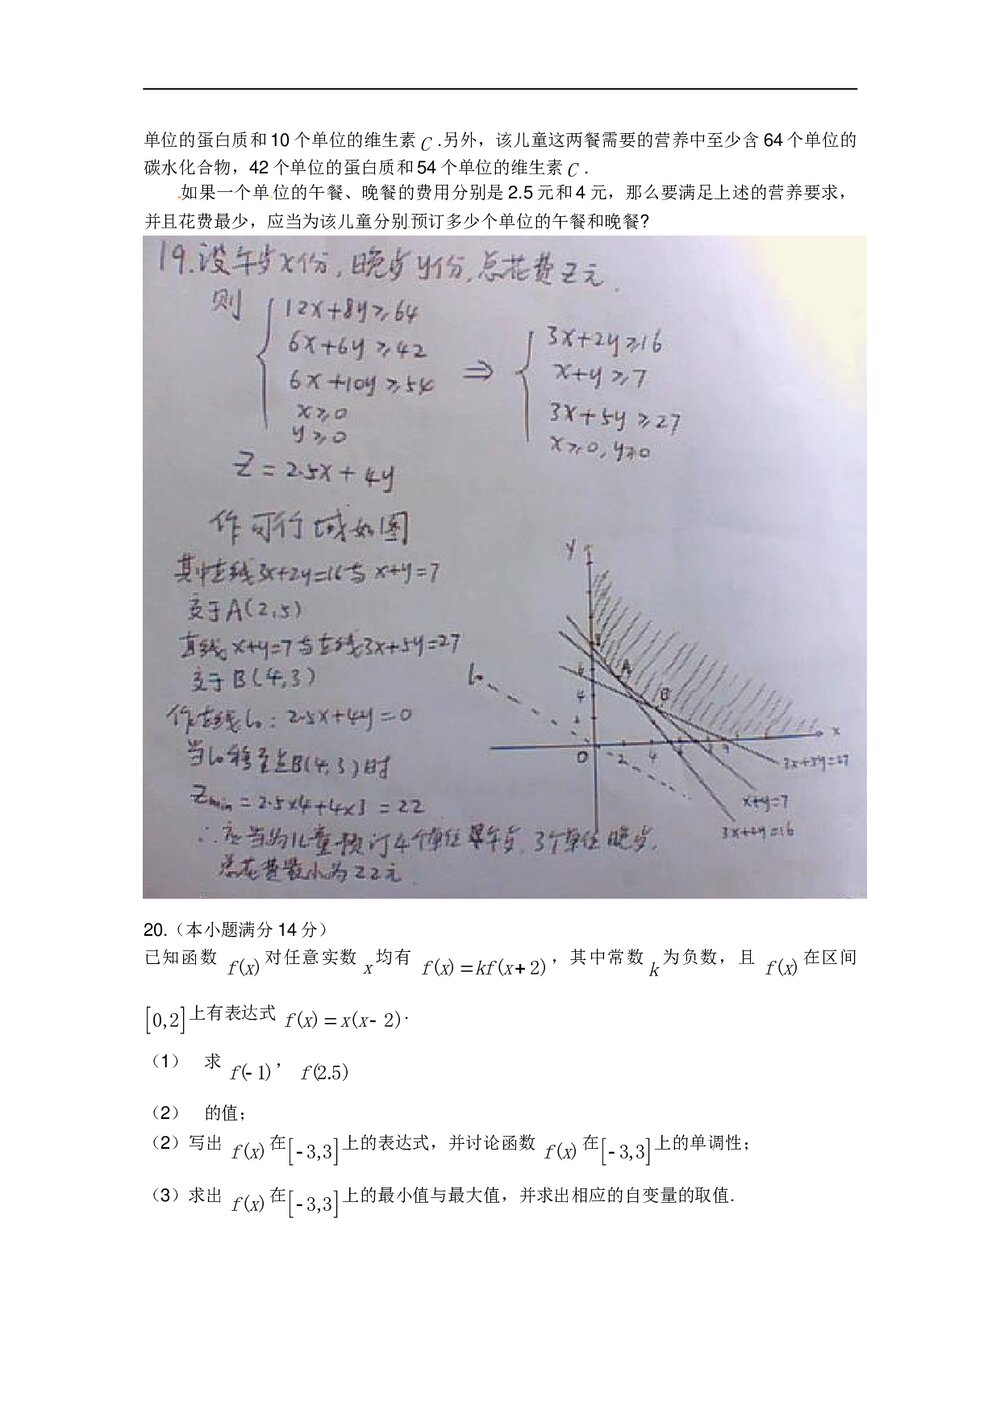 单位的蛋白质和 10 个单位的维生素 C .另外，该儿童这两餐需要的营养中至少含 64 个单位的
碳水化合物，42 个单位的蛋白质和 54 个单位的维生素 C .
如果一个单位的午餐、晚餐的费用分别是 2.5 元和 4 元，那么要满足上述的营养要求，
并且花费最少，应当为该儿童分别预订多少个单位的午餐和晚餐?
19.设午歺x份，晚歺y份，总花费Z元.
则
12x+8y≥64
6x+6y≥42
6x+10y≥54
x≥0
y≥0
⇒
3x+2y≥16
x+y≥7
3x+5y≥27
x≥0, y≥0
Z=2.5x+4y
作可行域如图
其中直线3x+2y=16与x+y=7
交于A(2,5)
直线x+y=7与直线3x+5y=27
交于B(4,3)
作直线l₀: 2.5x+4y=0
当l₀移至点B(4,3)时
Zmin=2.5×4+4×3=22
∴应当为儿童预订4个单位午歺, 3个单位晚歺.
总花费最小为22元
y
A
B
l₀
6
4
2
O
2
4
9
x
3x+5y=27
x+y=7
3x+2y=16
20.（本小题满分 14 分）
已知函数 f(x) 对任意实数 x 均有 f(x)=kf(x+2)，其中常数 k 为负数，且 f(x) 在区间
[0,2] 上有表达式 f(x)=x(x-2).
（1） 求 f(-1)， f(2.5)
（2） 的值；
（2）写出 f(x) 在[-3,3]上的表达式，并讨论函数 f(x) 在[-3,3]上的单调性；
（3）求出 f(x) 在[-3,3]上的最小值与最大值，并求出相应的自变量的取值.